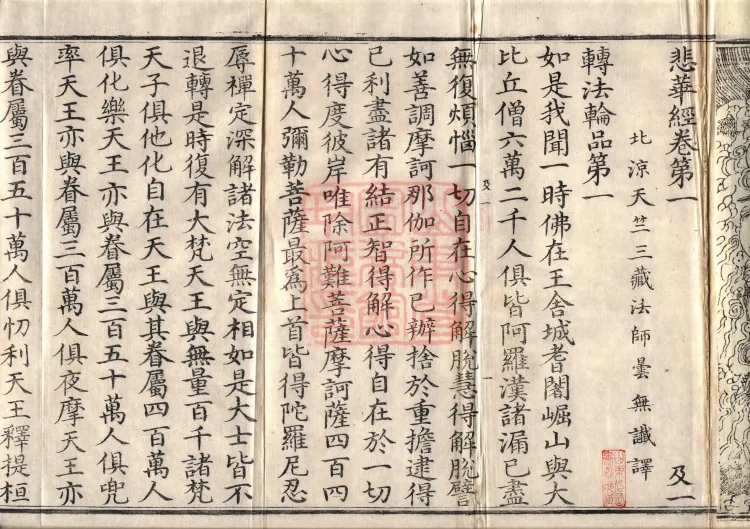 悲華經卷第一
及一
北涼天竺三藏法師曇無讖譯
轉法輪品第一
如是我聞一時佛在王舍城耆闍崛山與大
比丘僧六萬二千人俱皆阿羅漢諸漏已盡
無復煩惱一切自在心得解脫慧得解脫譬
及一
如善調摩訶那伽所作已辦捨於重擔逮得
已利盡諸有結正智得解心得自在於一切
心得度彼岸唯除阿難菩薩摩訶薩四百四
十萬人彌勒菩薩最為上首皆得陀羅尼忍
辱禪定深解諸法空無定相如是大士皆不
退轉是時復有大梵天王與無量百千諸梵
天子俱他化自在天王與其眷屬四百萬人
俱化樂天王亦與眷屬三百五十萬人俱兜
率天王亦與眷屬三百萬人俱夜摩天王亦
與眷屬三百五十萬人俱忉利天王釋提桓